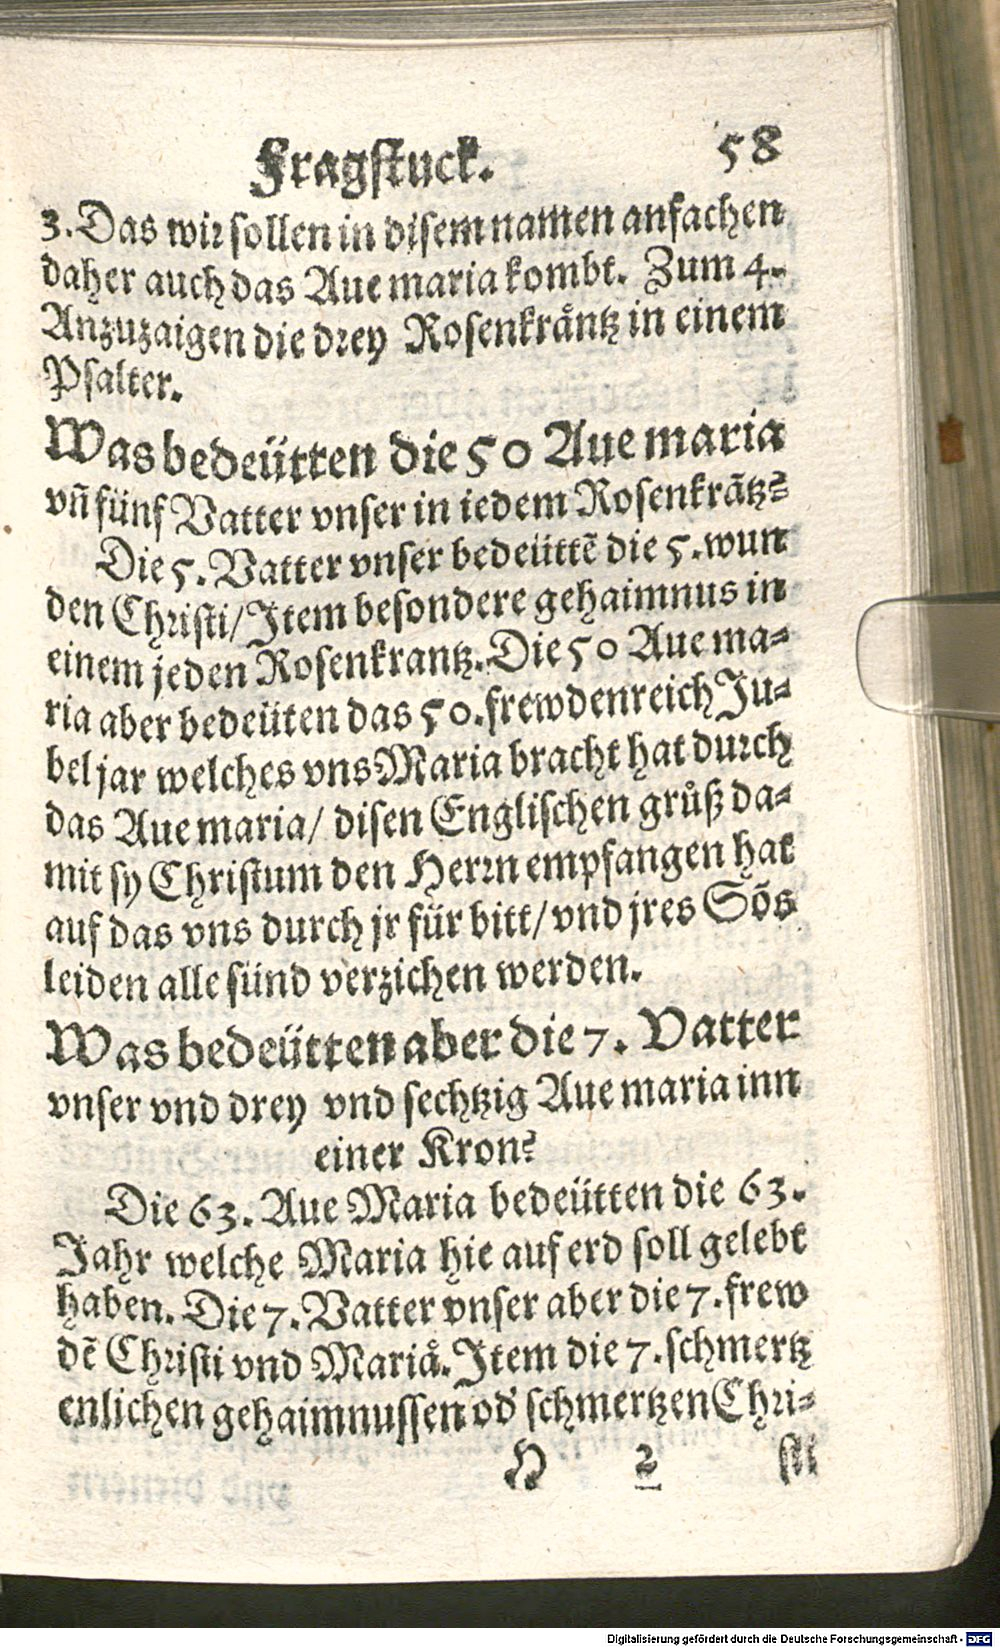 Fragstuck. 58
3. Das wir sollen in disem namen anfachen
daher auch das Aue maria kombt. Zum 4.
Anzuzaigen die drey Rosenkräntz in einem
Psalter.
Was bedeütten die 50 Aue maria
vñ fünf Vatter vnser in iedem Rosenkrãtz?
Die 5. Vatter vnser bedeüttẽ die 5. wun
den Christi/ Item besondere gehaimnus in
einem jeden Rosenkrantz. Die 50 Aue ma-
ria aber bedeüten das 50. frewdenreich Ju-
bel jar welches vns Maria bracht hat durch
das Aue maria/ disen Englischen grůß da-
mit sy Christum den Herrn empfangen hat
auf das vns durch jr für bitt/ vnd jres Sõs
leiden alle sünd verzichen werden.
Was bedeütten aber die 7. Vatter
vnser vnd drey vnd sechtzig Aue maria inn
einer Kron?
Die 63. Aue Maria bedeütten die 63.
Jahr welche Maria hie auf erd soll gelebt
haben. Die 7. Vatter vnser aber die 7. frew
dẽ Christi vnd Mariä. Item die 7. schmertz
enlichen gehaimnussen od' schmertzen Chri-
H 2 sti
Digitalisierung gefördert durch die Deutsche Forschungsgemeinschaft - DFG